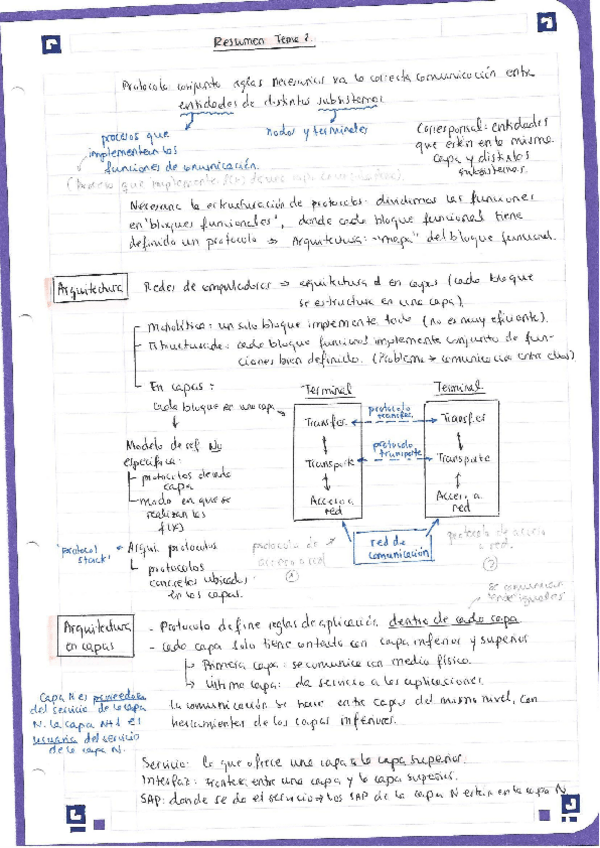 Resumen Tema 2.
Protocolo: conjunto reglas necesarias xa la correcta comunicación entre
entidades de distintos subsistemas
procesos que
implementan las
funciones de comunicación.
nodos y terminales
Corresponsal: entidades
que están en la misma
capa y distintos
subsistemas.
Necesaria la estructuración de protocolos: dividimos las funciones
en "bloques funcionales", donde cada bloque funcional tiene
definido un protocolo ⇒ Arquitectura: "mapa" del bloque funcional.
Arquitectura
Redes de computadores ⇒ arquitectura en capas (cada bloque
se estructura en una capa).
Monolítica: un solo bloque implementa todo (no es muy eficiente).
Estructurada: cada bloque funcional implementa conjunto de fun-
ciones bien definido. (Problema → comunicación entre ellos)
En capas:
cada bloque es una capa
Modelo de ref. No
especifica:
protocolos de cada
capa
modo en que se
realizan las
f(x)
"protocol
stack"
Arqui. protocolos
protocolos
concretos ubicados
en las capas.
Terminal
Terminal
Transfer.
protocolo
transfer.
Transfer
Transporte
protocolo
transporte
Transporte
Acceso a
red
Acceso a
red
red de
comunicación
protocolo de
acceso a red
protocolo de acceso
a red.
se comunican
entre iguales
Arquitectura
en capas
- Protocolo define reglas de aplicación dentro de cada capa
- cada capa solo tiene contacto con capa inferior y superior
Primera capa: se comunica con medio físico.
Última capa: da servicio a las aplicaciones.
Capa N es proveedora
del servicio de la capa
N. la capa N+1 es
usuaria del servicio
de la capa N.
la comunicación se hace entre capas del mismo nivel, con
herramientas de las capas inferiores.
Servicio: lo que ofrece una capa a la capa superior.
Interfaz: frontera entre una capa y la capa superior.
SAP: donde se da el servicio → los SAP de la capa N están en la capa N